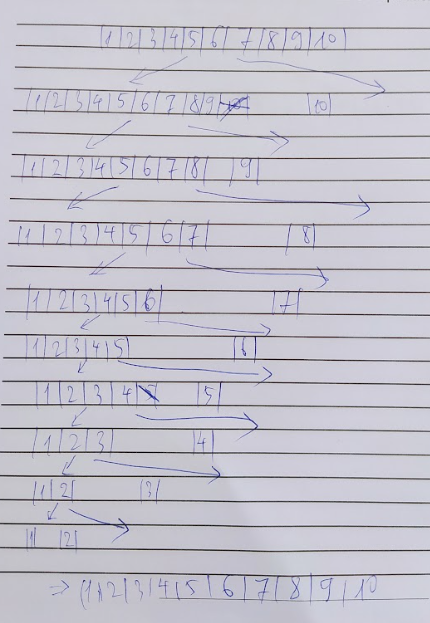 |1|2|3|4|5|6|7|8|9|10|
|1|2|3|4|5|6|7|8|9| |10|
|1|2|3|4|5|6|7|8| |9|
|1|2|3|4|5|6|7| |8|
|1|2|3|4|5|6| |7|
|1|2|3|4|5| |6|
|1|2|3|4| |5|
|1|2|3| |4|
|1|2| |3|
|1| |2|
=> |1|2|3|4|5|6|7|8|9|10